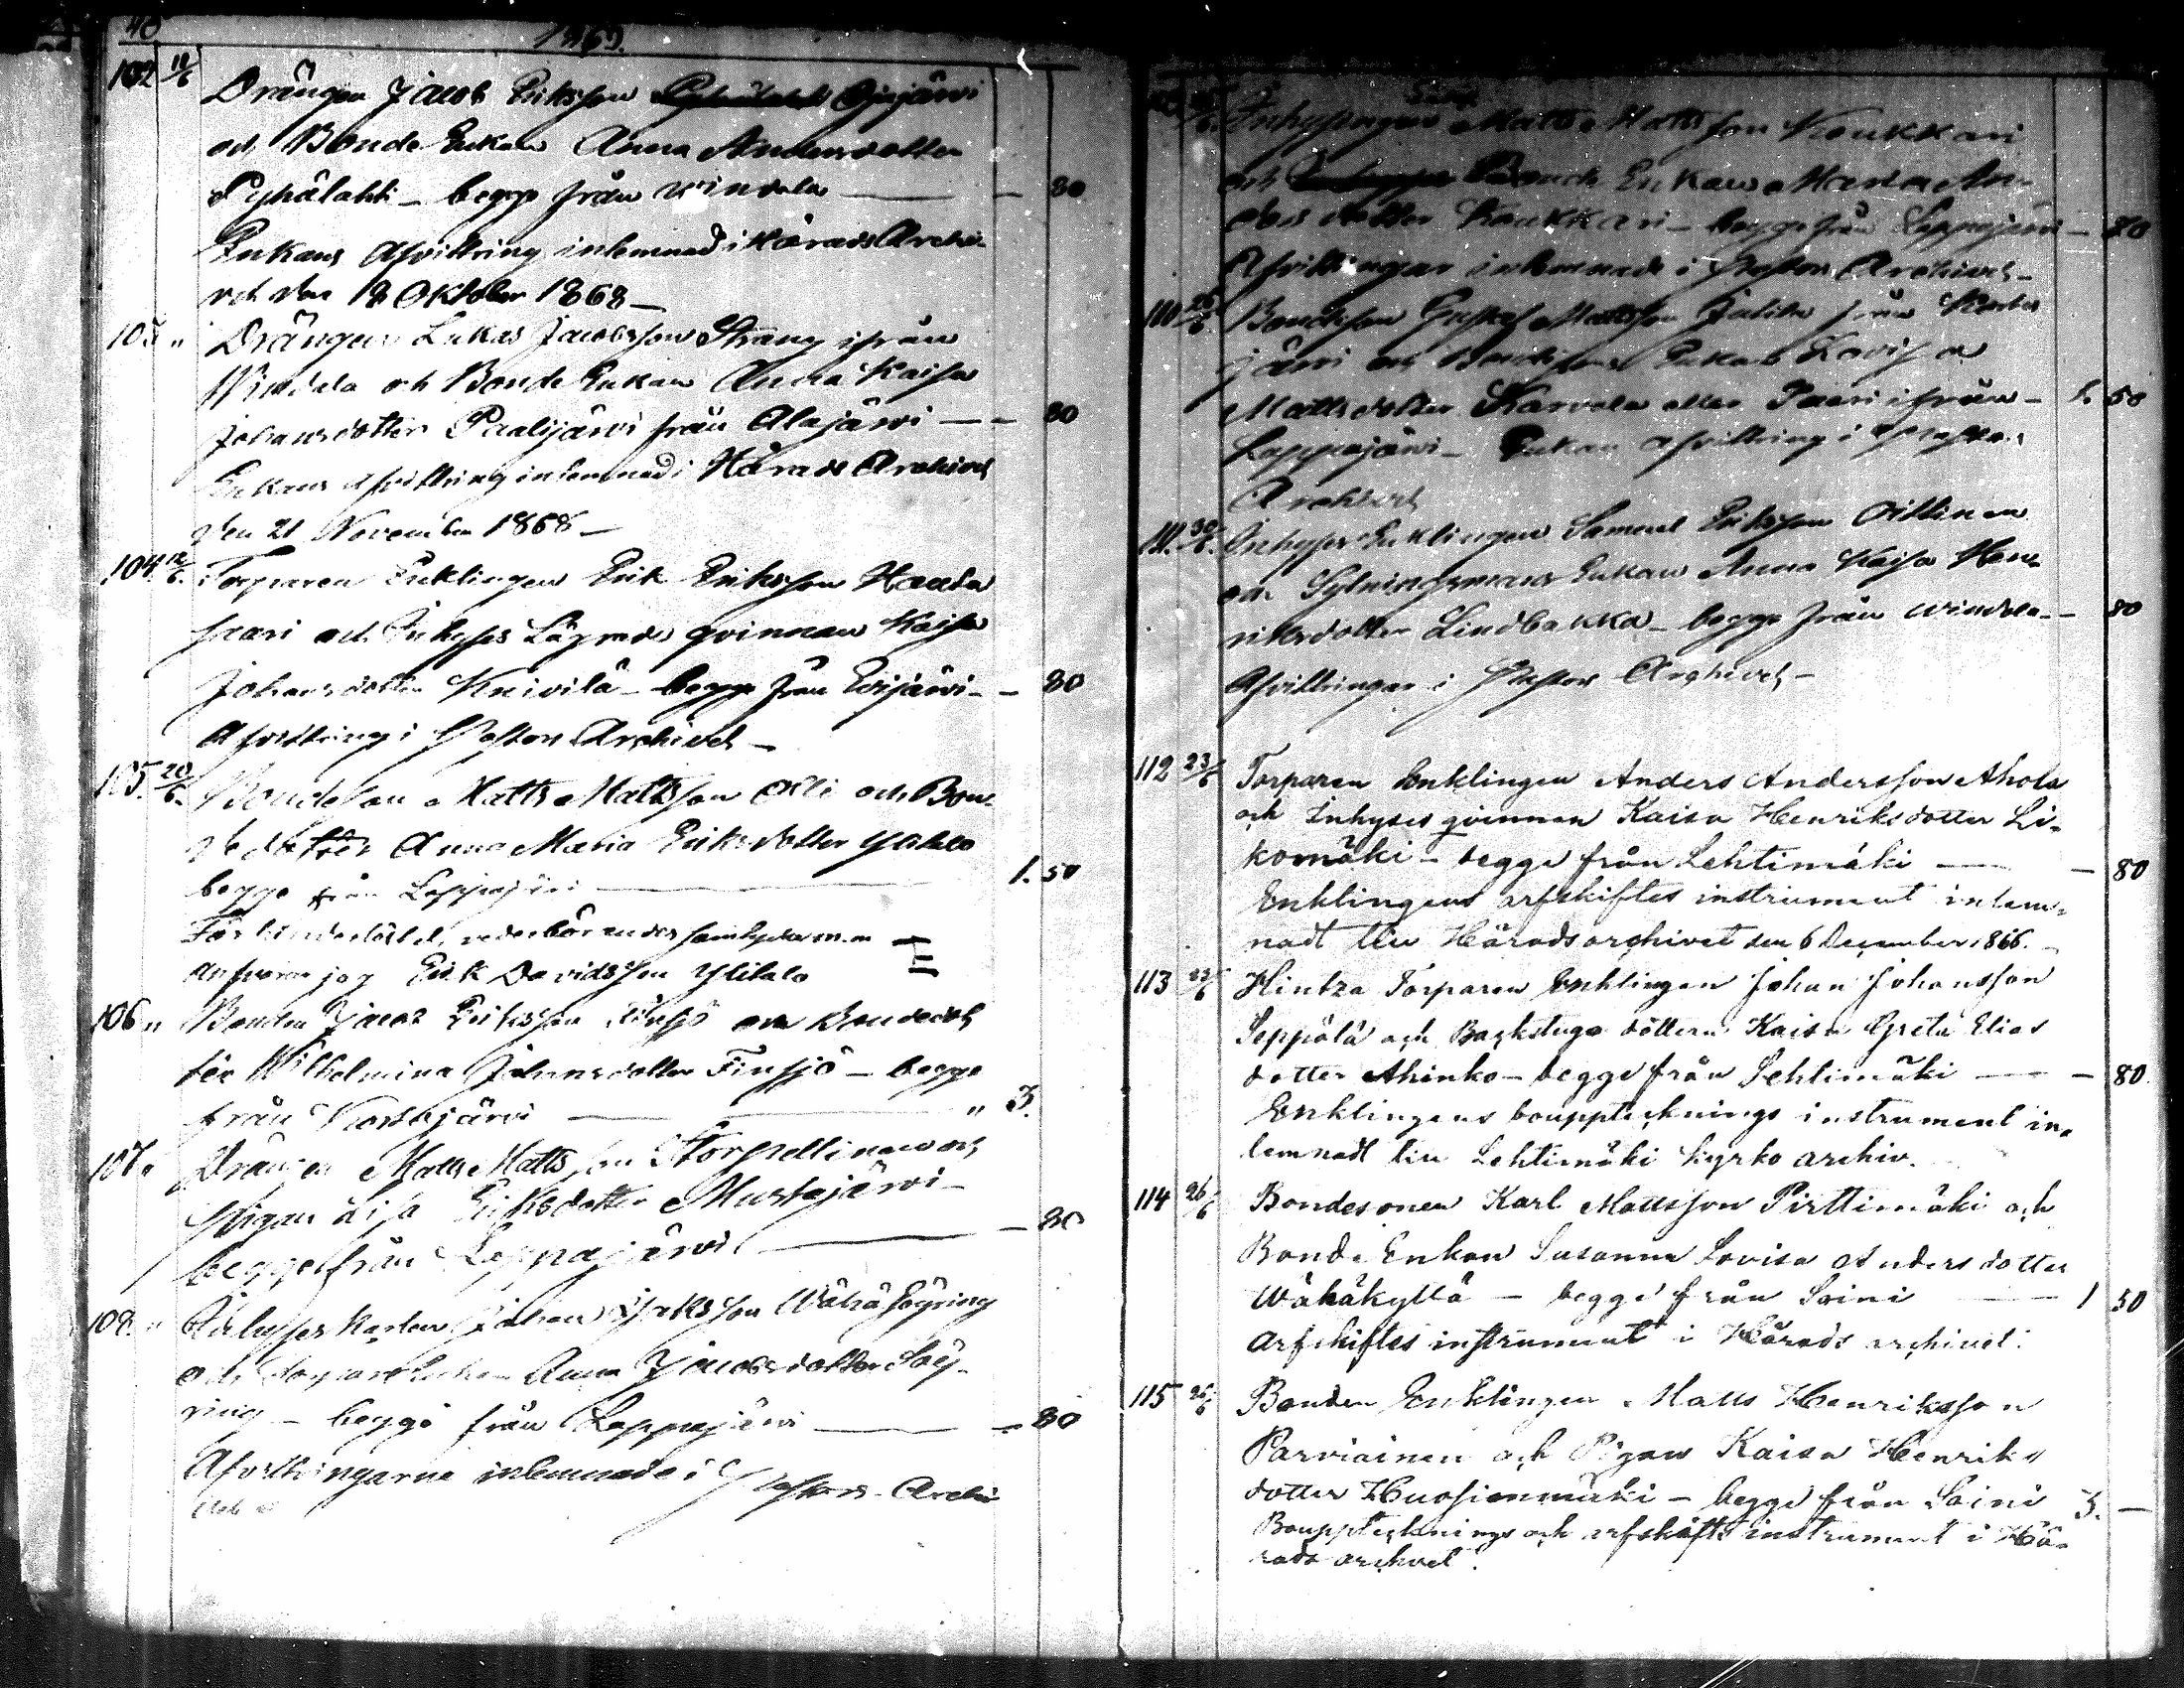 40
1869.
102 18/6 Drängen Jacob Eriksson Ojajärvi
och Bonde Enkan Anna Andersdotter
Pyhälahti - begge från Windala — — 80
Enkans Afvittring inlemnad i Härads Archi-
vet den 18 Oktober 1868 —
103 " Drängen Lukas Jacobsson Strang ifrån
Windala och Bonde Enkan Anna Kaisa
Johansdotter Paalijärvi från Alajärwi — — 80
Enkans afvittring inlemnad i Härads Archivet
den 21 November 1868 —
104. 18/6. Torparen Enklingen Erik Eriksson Hauta
saari och Inhyses Lägrade qvinnan Kaisa
Johansdotter Kniivilä - begge från Evijärvi - — 80
Afvittring i Pastors Archivet —
105. 20/6. Bondeson Matts Mattsson Olli och Bon-
dedotter Anna Maria Eriksdotter Ylitalo
begge från Lappajärvi — 1. 50
För hinderslöshet, vederbörandes samtycke m.m
ansvarar jag Erik Davidsson Ylitalo
106 " Bonden Jacob Eriksson och Bondedot
ter Wilhelmina Johansdotter Finsjö - begge
från Kortesjärvi — " 3.
107 " Drängen Matts Mattsson Storpellinen och
Pigan Lisa Eriksdotter Mustajärvi -
begge från Lappajärvi — — 80
108. " Inhyses Karlen Johan Isaksson Wähä Söyring
och Anna Jacobsdotter Söy-
ring - begge från Lappajärvi — — 80
Afvittringarne inlemnade i Pastors Archi
vet
Inhysingen Matts Mattsson Koukkari
och Bonde Enkan Maria An-
dersdotter Koukkari - begge från Lappajärvi — 80
Afvittringar inlemnade i Pastors Archivet -
110 26/6 Bondeson Gustaf Mattsson från Kortes
järvi och Bondesons Enkan Lovisa
Mattsdotter Karvala eller Paari ifrån - 1. 50
Lappajärvi - Enkan afvittring i Pastors
Archivet
111. 30/6. Inhyses Enklingen Samuel Eriksson Oittinen
och Sytningsmans Enkan Anna Kaisa Hen-
riksdotter Lindbakka - begge från Windala - — 80
Afvittringar i Pastors Archivet -
112 23/6 Torparen Enklingen Anders Andersson Ahola
och Inhyses qvinnan Kaisa Henriksdotter Li-
komäki - begge från Lehtimäki — — 80
Enklingens arfskiftes instrument inlem-
nadt till Häradsarchivet den 6 December 1866.
113 23/6 Hintza Torparen Enklingen Johan Johansson
Seppälä och Backstuge dottern Kaisa Greta Elias
dotter Ahinko - begge från Lehtimäki — — 80
Enklingens bouppteknings instrument in-
lemnadt till Lehtimäki Kyrko archiv.
114 26/6 Bondesonen Karl Mattsson Pirttimäki och
Bonde Enkan Susanna Lovisa Andersdotter
Wähäkyllä - begge från Soini — 1 50
arfskiftes instrument i Härads archivet.
115 26/6 Bonden Enklingen Matts Henriksson
Parviainen och Pigan Kaisa Henriks
dotter Huosianmäki - begge från Soini 3. —
Bouppteknings och arfskifts instrument i Hä-
rads archivet.